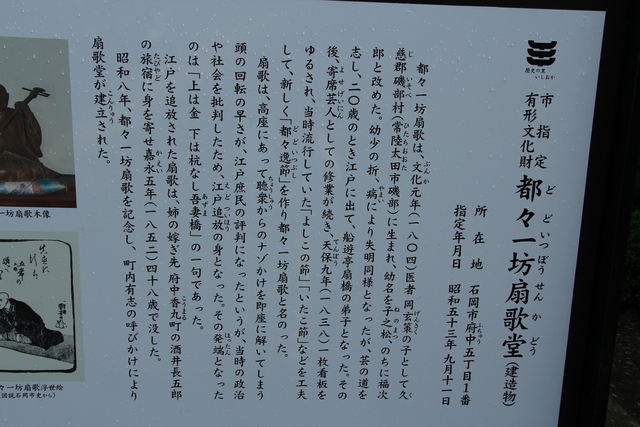 歴史の里
いしおか
市指定
有形文化財
都々一坊扇歌堂(建造物)
どどいつぼうせんかどう
所在地 石岡市府中五丁目1番
指定年月日 昭和五十三年九月十一日
都々一坊扇歌は、文化元年(一八〇四)医者 岡玄策の子として久
慈郡磯部村(常陸太田市磯部)に生まれ、幼名を子之松、のちに福次
郎と改めた。幼少の折、病により失明同様となったが、芸の道を
志し、二〇歳のとき江戸に出て、船遊亭扇橋の弟子となった。その
後、寄席芸人としての修業が続き、天保九年(一八三八)一枚看板を
ゆるされ、当時流行していた「よしこの節」「いたこ節」などを工夫
して、新しく「都々逸節」を作り都々一坊扇歌と名のった。
扇歌は、高座にあって聴衆からのナゾかけを即座に解いてしまう
頭の回転の早さが、江戸庶民の評判になったというが、当時の政治
や社会を批判したため、江戸追放の身となった。その発端となった
のは「上は金 下は杭なし吾妻橋」の一句であった。
江戸を追放された扇歌は、姉の嫁ぎ先 府中香丸町の酒井長五郎
の旅宿に身を寄せ嘉永五年(一八五二)四十八歳で没した。
昭和八年、都々一坊扇歌を記念し、町内有志の呼びかけにより
扇歌堂が建立された。
一坊扇歌木像
々一坊扇歌浮世絵
(図説石岡市史から)